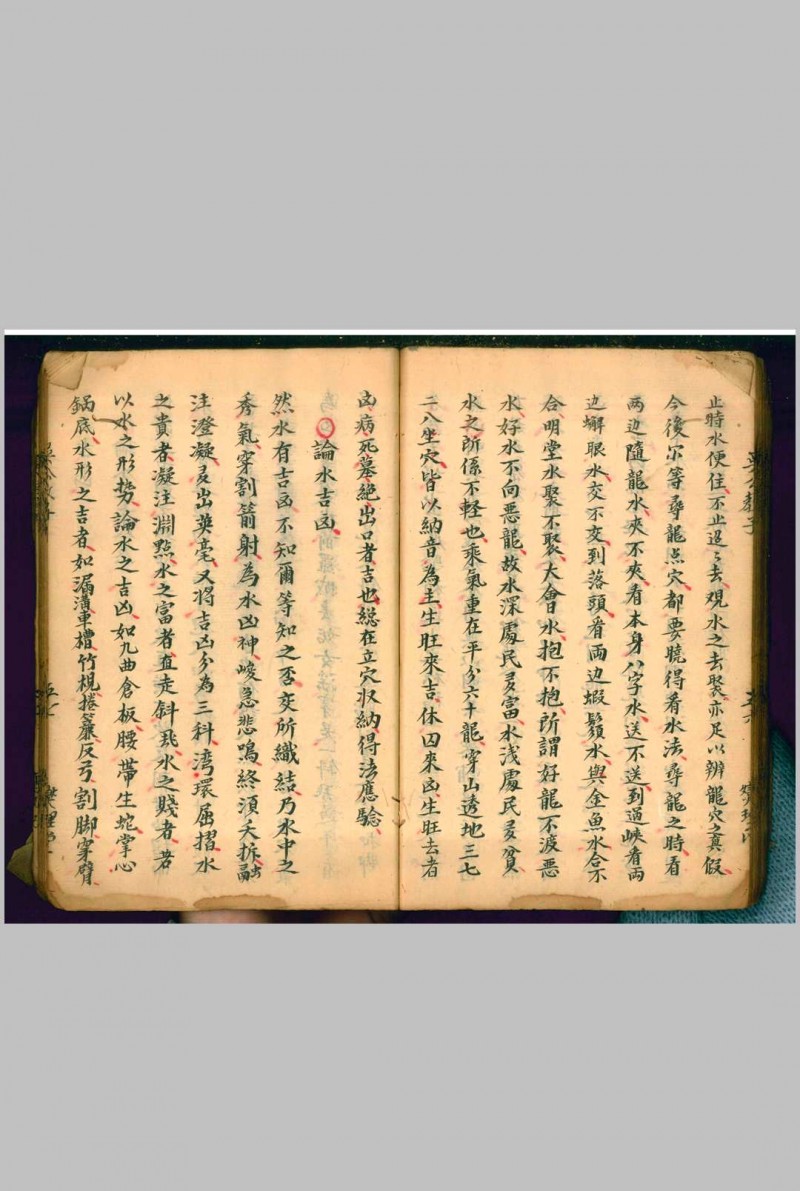 止時水便住不止逞〻去観水之去聚亦足以辨龍穴之真假
今後尔等尋龍点穴都要曉得看水法尋龍之時看
两边隨龍水夾不夾看本身八字水送不送到過峽看两
边蠏眼水交不交到落頭看两边蝦鬚水與金魚水合不
合明堂水聚不聚大會日水抱不抱所謂好龍不渡悪
水好水不向悪龍故水深處民多富水浅處民多貧
水之所係不軽也乘氣重在平分六十龍穿山透地三七
二八坐穴皆以納音為主生旺來吉休囚來凶生旺去者
凶病死墓絶出口者吉也総在立穴収納得法應驗
論水吉凶
然水有吉凶不知爾等知之否交所織結乃水中之
秀氣穿割箭射為水凶神峻急悲鳴終須夭拆融
注澄凝多出英毫又将吉凶分為三科湾環屈摺水
之貴者凝注淵㸃水之富者直走斜飛水之賤者若
以水之形势論水之吉凶如九曲倉板腰帶生蛇掌心
鍋底水形之吉者如漏溝車槽竹梘捲簾反弓割脚穿臂